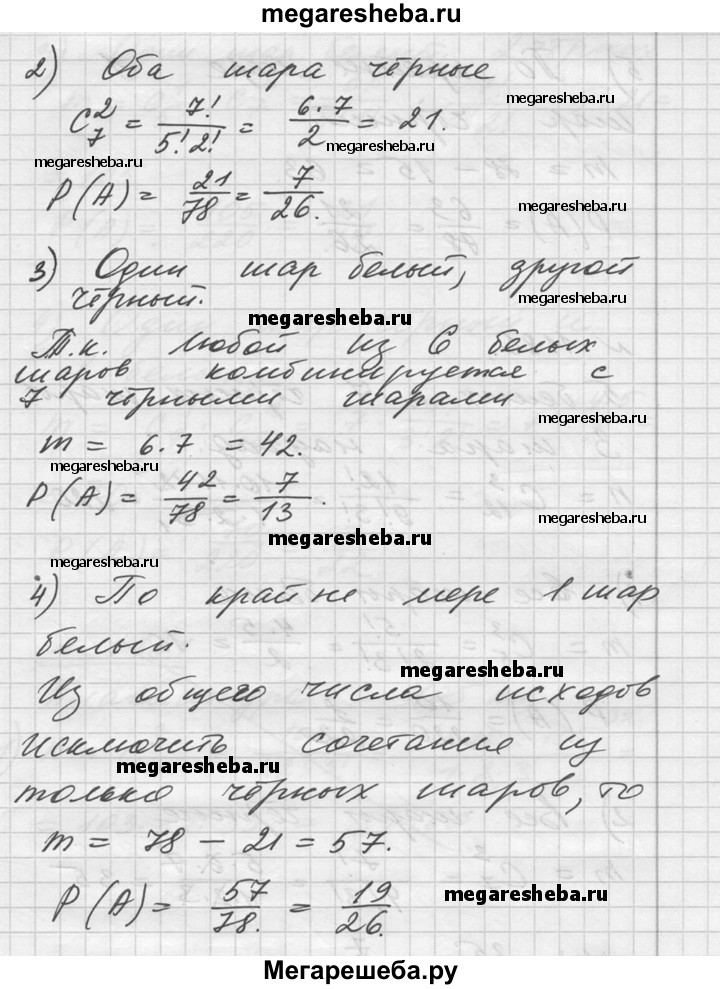 megaresheba.ru
2) Оба шара чёрные
megaresheba.ru
C₇² = 7!/5!2! = 6·7/2 = 21.
megaresheba.ru
megaresheba.ru
P(A) = 21/78 = 7/26.
megaresheba.ru
3) Один шар белый, другой
чёрный.
megaresheba.ru
Т.к. любой из 6 белых
шаров комбинируется с
7 чёрными шарами
megaresheba.ru
m = 6.7 = 42.
megaresheba.ru
P(A) = 42/78 = 7/13.
megaresheba.ru
megaresheba.ru
megaresheba.ru
4) По крайне мере 1 шар
белый.
megaresheba.ru
Из общего числа исходов
исключить сочетания из
megaresheba.ru
только чёрных шаров, то
m = 78 - 21 = 57.
P(A) = 57/78. = 19/26.
megaresheba.ru
Мегарешеба.ру